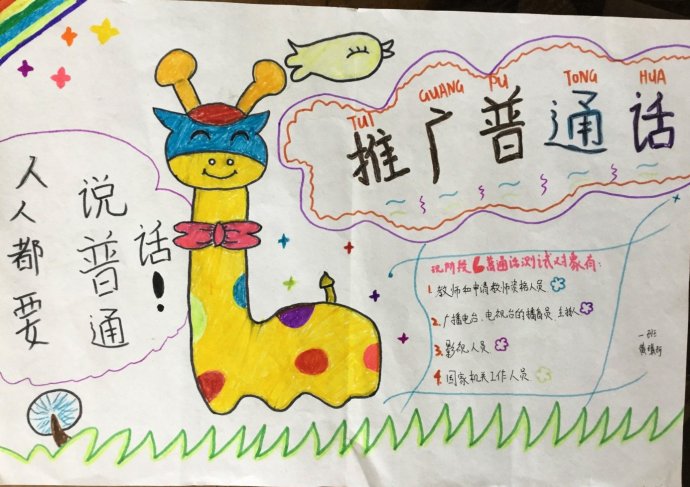 TUI GUANG PU TONG HUA
推广普通话
人人都要
说普通
话!
现阶段普通话测试对象有:
1. 教师和申请教师资格人员
2. 广播电台、电视台的播音员、主持人
3. 影视人员
4. 国家机关工作人员
一班